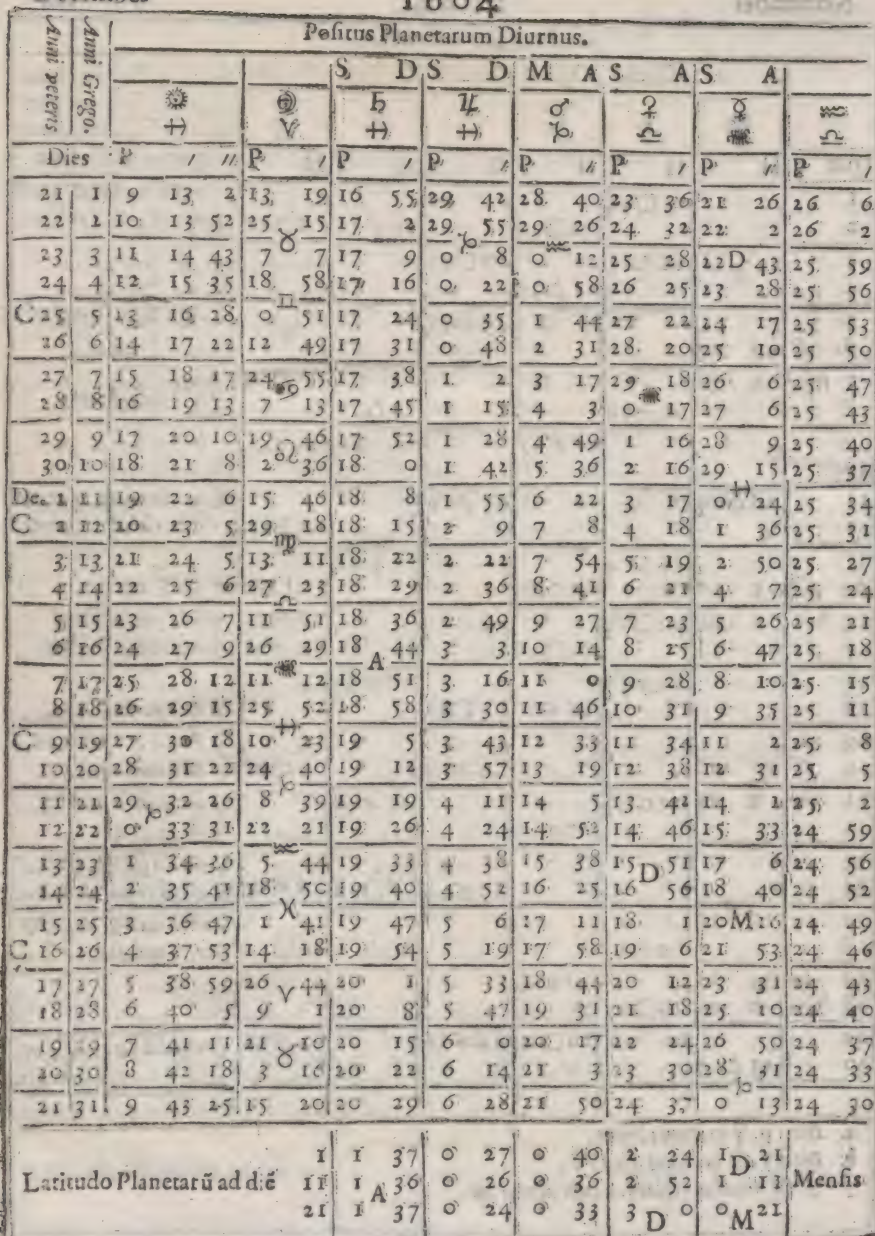 1604
Positus Planetarum Diurnus.
Anni veteris Anni Grego. S, D S D M A S A S A
☉ ☽ ♄ ♃ ♂ ♀ ☿ ☊
♐ ♈ ♐ ♐ ♑ ♎ ♏ ♎
Dies P / // P / P / P / P / P / P / P /
21 1 9 13 2 13 19 16 55 29 42 28 40 23 36 21 26 26 6
22 2 10 13 52 25 15 17 2 29 55 29 26 24 32 22 2 26 2
♉ ♑ ♒
23 3 11 14 43 7 7 17 9 0 8 0 12 25 28 22 D 43 25 59
24 4 12 15 35 18 58 17 16 0 22 0 58 26 25 23 28 25 56
♊
C 25 5 13 16 28 0 51 17 24 0 35 1 44 27 22 24 17 25 53
26 6 14 17 22 12 49 17 31 0 48 2 31 28 20 25 10 25 50
27 7 15 18 17 24 55 17 38 1 2 3 17 29 18 26 6 25 47
♋ ♏
28 8 16 19 13 7 13 17 45 1 15 4 3 0 17 27 6 25 43
29 9 17 20 10 19 46 17 52 1 28 4 49 1 16 28 9 25 40
♌
30 10 18 21 8 2 36 18 0 1 42 5 36 2 16 29 15 25 37
♐
De. 1 11 19 22 6 15 46 18 8 1 55 6 22 3 17 0 24 25 34
C 2 12 20 23 5 29 18 18 15 2 9 7 8 4 18 1 36 25 31
♍
3 13 21 24 5 13 11 18 22 2 22 7 54 5 19 2 50 25 27
4 14 22 25 6 27 23 18 29 2 36 8 41 6 21 4 7 25 24
♎
5 15 23 26 7 11 51 18 36 2 49 9 27 7 23 5 26 25 21
6 16 24 27 9 26 29 18 44 3 3 10 14 8 25 6 47 25 18
♏ A
7 17 25 28 12 11 12 18 51 3 16 11 0 9 28 8 10 25 15
8 18 26 29 15 25 52 18 58 3 30 11 46 10 31 9 35 25 11
♐
C 9 19 27 30 18 10 23 19 5 3 43 12 33 11 34 11 2 25 8
10 20 28 31 22 24 40 19 12 3 57 13 19 12 38 12 31 25 5
♑
11 21 29 32 26 8 39 19 19 4 11 14 5 13 42 14 1 25 2
♑
12 22 0 33 31 22 21 19 26 4 24 14 52 14 46 15 33 24 59
♒
13 23 1 34 36 5 44 19 33 4 38 15 38 15 51 17 6 24 56
D
14 24 2 35 41 18 50 19 40 4 52 16 25 16 56 18 40 24 52
♓
15 25 3 36 47 1 41 19 47 5 6 17 11 18 1 20 M 16 24 49
C 16 26 4 37 53 14 18 19 54 5 19 17 58 19 6 21 53 24 46
17 27 5 38 59 26 44 20 1 5 33 18 44 20 12 23 31 24 43
♈
18 28 6 40 5 9 1 20 8 5 47 19 31 21 18 25 10 24 40
19 29 7 41 11 21 10 20 15 6 0 20 17 22 24 26 50 24 37
♉
20 30 8 42 18 3 16 20 22 6 14 21 3 23 30 28 31 24 33
♑
21 31 9 43 25 15 20 20 29 6 28 21 50 24 37 0 13 24 30
1 1 37 0 27 0 40 2 24 1 D 21
Latitudo Planetarū ad diē 11 1 A 36 0 26 0 36 2 52 1 13 Mensis
21 1 37 0 24 0 33 3 D 0 0 M 21